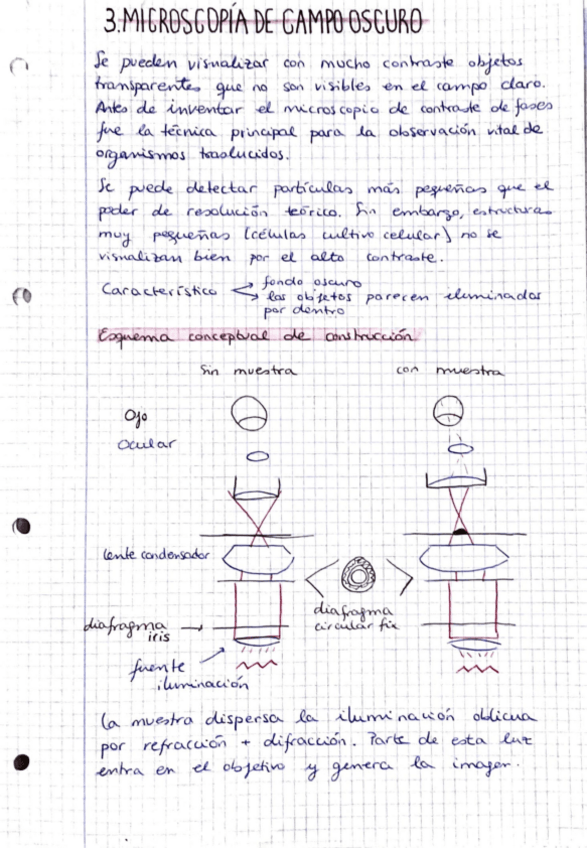 3. MICROSCOPÍA DE CAMPO OSCURO
Se pueden visualizar con mucho contraste objetos
transparentes que no son visibles en el campo claro.
Antes de inventar el microscopio de contraste de fases
fue la técnica principal para la observación vital de
organismos traslucidos.
Se puede detectar partículas más pequeñas que el
poder de resolución teórico. Sin embargo, estructuras
muy pequeñas (células cultivo celular) no se
visualizan bien por el alto contraste.
Característico
fondo oscuro
los objetos parecen iluminados
por dentro
Esquema conceptual de construcción
Sin muestra
con muestra
Ojo
Ocular
lente condensador
diafragma
iris
diafragma
circular fix
fuente
iluminación
La muestra dispersa la iluminación oblicua
por refracción + difracción. Parte de esta luz
entra en el objetivo y genera la imagen.